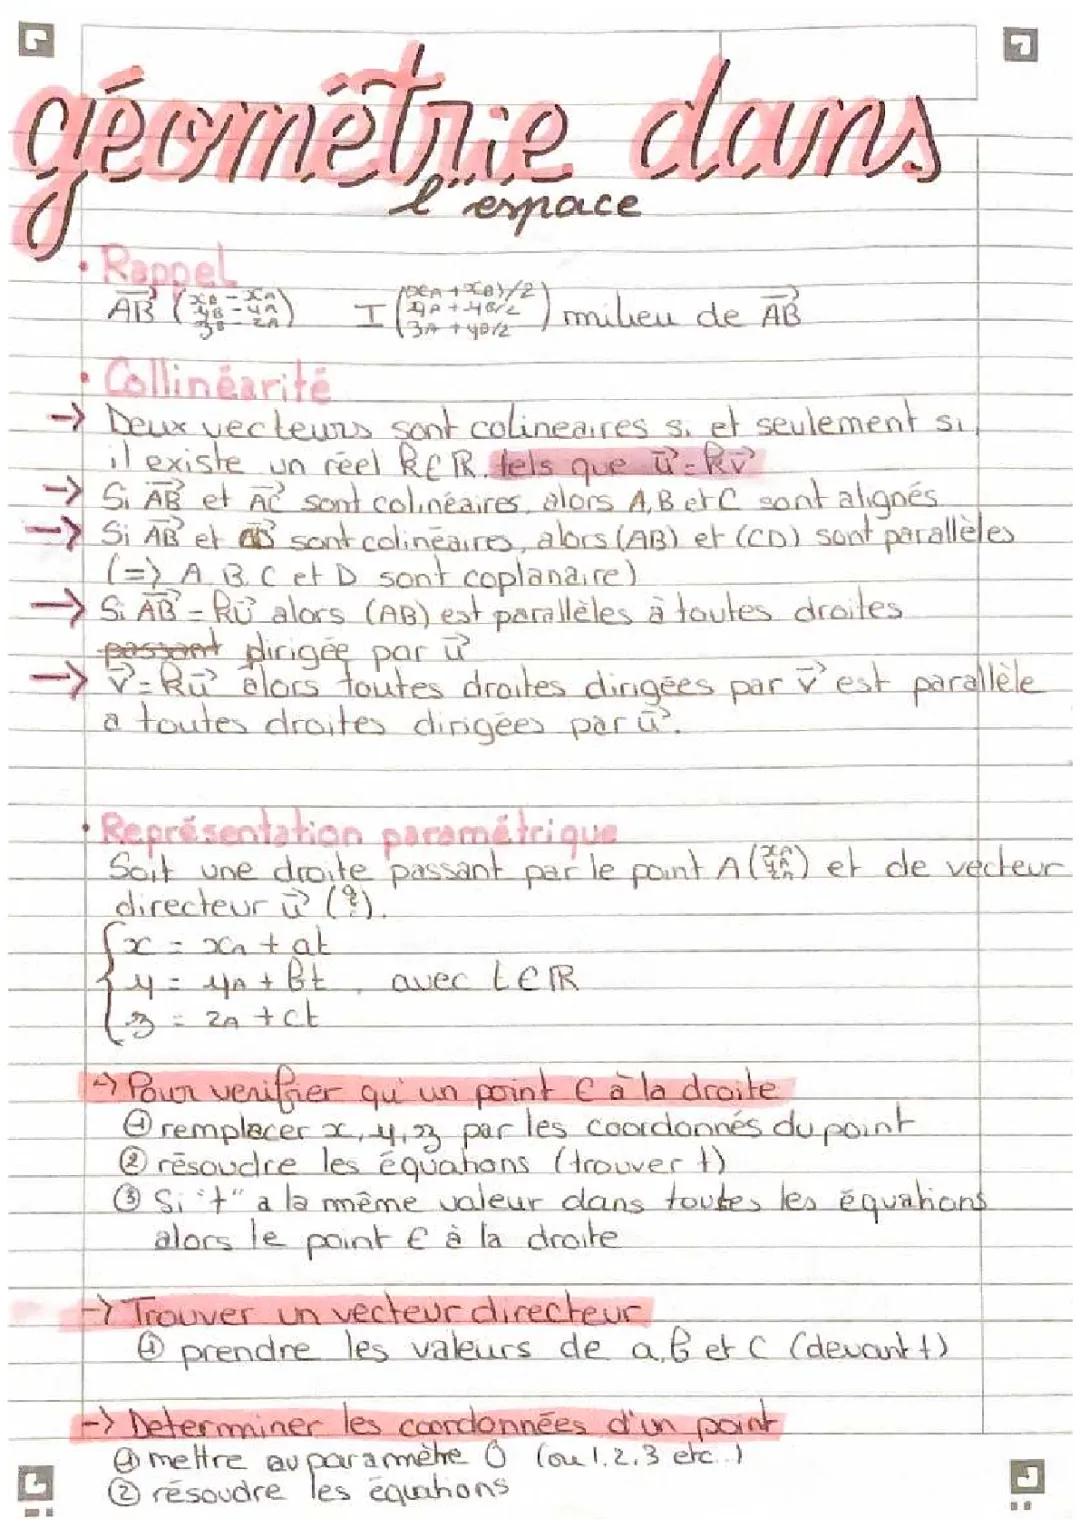 géométrie dans
l'espace
• Rappel
AB→ (xB - xA
yB - yA
zB - zA)
I ((xA + xB)/2
yA + yB/2
zA + yB/2) milieu de AB→
• Collinéarité
→ Deux vecteurs sont colineaires si et seulement si
il existe un réel k∈ℝ. tels que u→ = kv→
→ Si AB→ et AC→ sont colinéaires, alors A, B et C sont alignés.
→ Si AB→ et sont colinéaires, alors (AB) et (CD) sont parallèles
(=> A. B. C et D sont coplanaire)
→ Si AB→ = ku→ alors (AB) est parallèles à toutes droites
passant dirigée par u→
→ v→ = ku→ alors toutes droites dirigées par v→ est parallèle
a toutes droites dirigées par u→.
• Représentation paramétrique
Soit une droite passant par le point A (xA
yA
zA) et de vecteur
directeur u→ (a
b
c).
{x = xA + at
y = yA + bt, avec t∈ℝ
z = zA + ct
→ Pour verifier qu'un point ∈ à la droite
① remplacer x, y, z par les coordonnés du point
② résoudre les équations (trouver t)
③ Si "t" a la même valeur dans toutes les équations
alors le point ∈ à la droite
→ Trouver un vecteur directeur
① prendre les valeurs de a, b et c (devant t)
→ Determiner les coordonnées d'un point
① mettre au paramètre 0 (ou 1, 2, 3 etc..)
② résoudre les équations